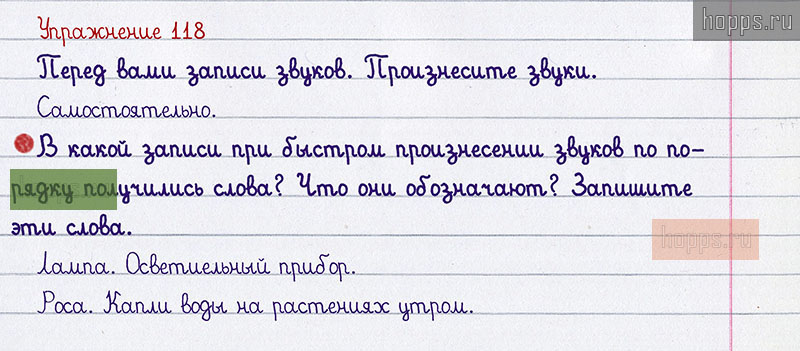 hopps.ru
Упражнение 118
Перед вами записи звуков. Произнесите звуки.
Самостоятельно.
В какой записи при быстром произнесении звуков по по-
рядку получились слова? Что они обозначают? Запишите
эти слова.
hopps.ru
Лампа. Осветиельный прибор.
Роса. Капли воды на растениях утром.